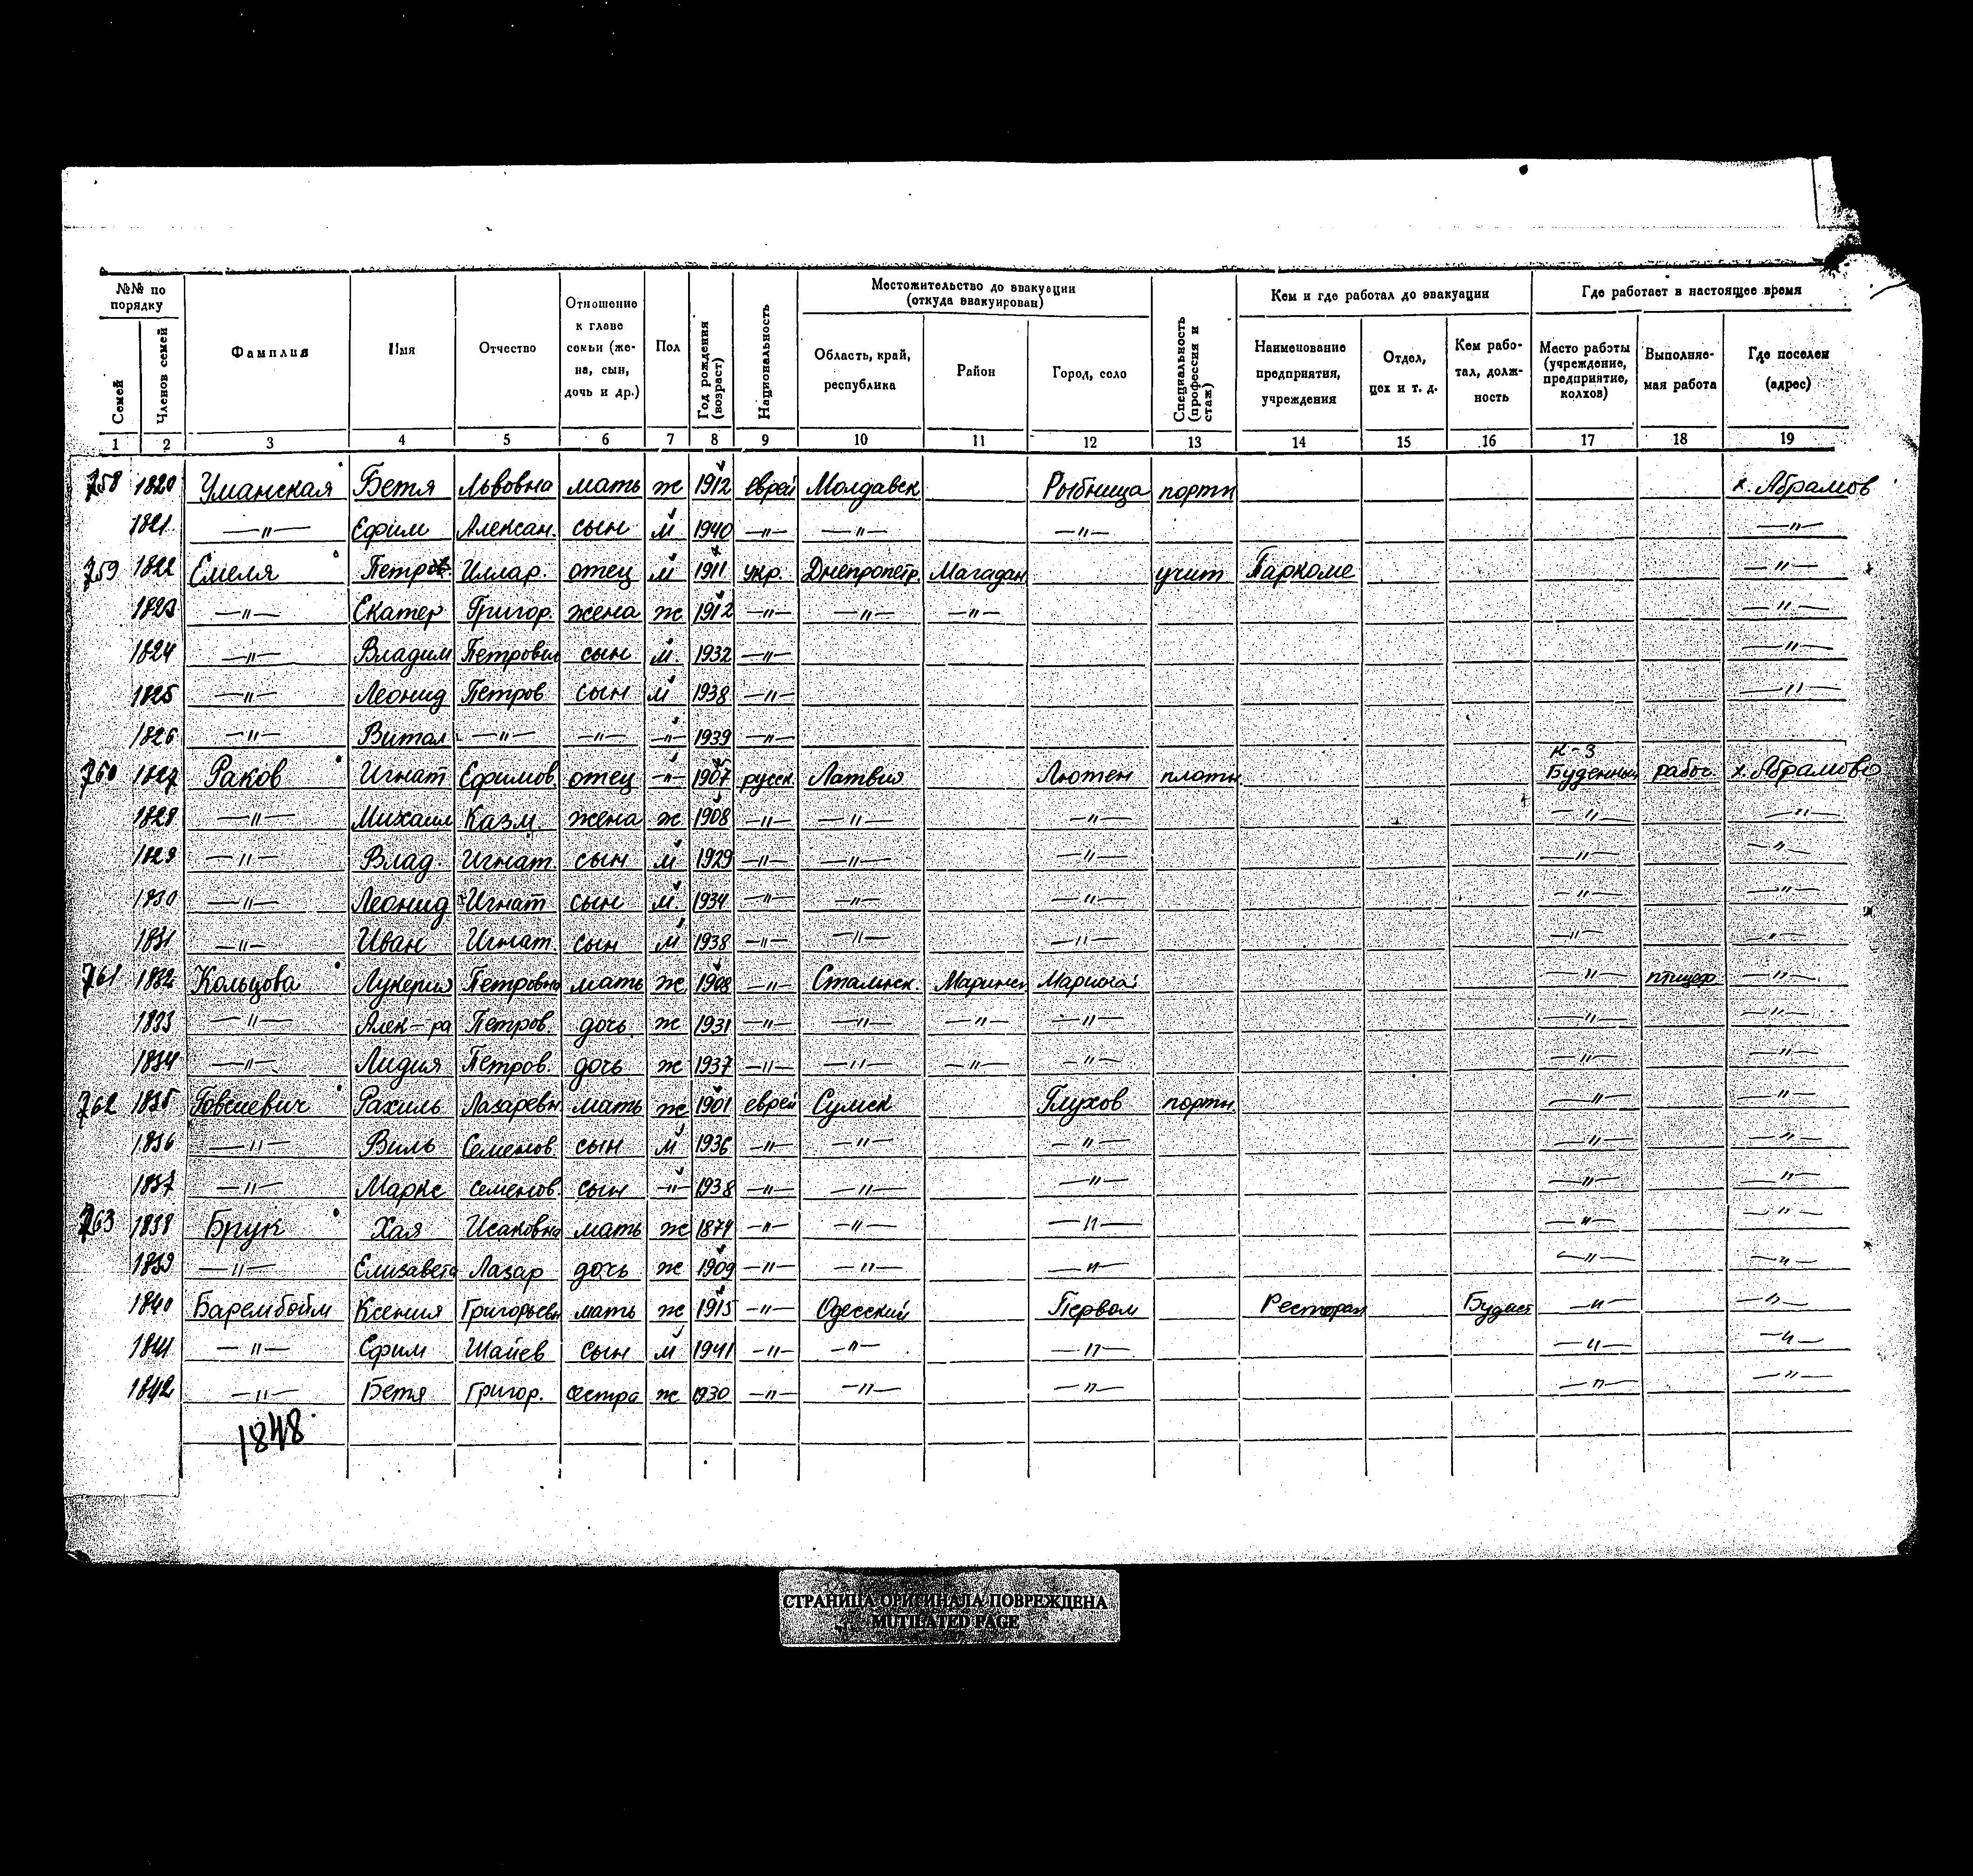 №№ по порядку | Фамилия | Имя | Отчество | Отношение к главе семьи (жена, сын, дочь и др.) | Пол | Год рождения (возраст) | Национальность | Местожительство до эвакуации (откуда эвакуирован) | Специальность (профессия и стаж) | Кем и где работал до эвакуации | Где работает в настоящее время
Семей | Членов семей | Область, край, республика | Район | Город, село | Наименование предприятия, учреждения | Отдел, цех и т. д. | Кем работал, должность | Место работы (учреждение, предприятие, колхоз) | Выполняемая работа | Где поселен (адрес)
1 2 3 4 5 6 7 8 9 10 11 12 13 14 15 16 17 18 19
758 1820 Уманская Бетя Львовна мать ж 1912 еврей Молдавск Рыбница портн х. Абрамов
1821 —"— Ефим Алексан. сын м 1940 —"— —"— —"— —"—
759 1822 Емеля Петр Иллар. отец м 1911 укр. Днепропетр. Магадан учит Паркоме —"—
1823 —"— Екатер Григор. жена ж 1912 —"— —"— —"— —"—
1824 —"— Владим Петрович сын м. 1932 —"— —"—
1825 —"— Леонид Петров сын м 1938 —"— —"—
1826 —"— Витал —"— —"— —"— 1939 —"—
760 1827 Раков Игнат Ефимов. отец —"— 1907 русск. Латвия Лютен плотн. к-з Буденный рабоч. х. Абрамово
1828 —"— Михаил Казм. жена ж 1908 —"— —"— —"— —"— —"—
1829 —"— Влад. Игнат. сын м 1929 —"— —"— —"— —"— —"—
1830 —"— Леонид Игнат сын м. 1934 —"— —"— —"— —"— —"—
1831 —"— Иван Игнат. сын м 1938 —"— —"— —"— —"— —"—
761 1832 Кольцова Лукерия Петровна мать ж 1908 —"— Сталинск. Маринск —"— птицер —"—
1833 —"— Алек-ра Петров. дочь ж 1931 —"— —"— —"— —"— —"— —"—
1834 —"— Лидия Петров. дочь ж 1937 —"— —"— —"— —"— —"— —"—
762 1835 Рахиль Лазаревн мать ж 1901 еврей Сумск Глухов портн. —"— —"—
1836 —"— Виль Семенов. сын м 1936 —"— —"— —"— —"— —"—
1837 —"— Маркс Семенов. сын —"— 1938 —"— —"— —"— —"— —"—
763 1838 Брук Хая Исаковна мать ж 1874 —"— —"— —"— —"— —"—
1839 —"— Елизавета Лазар дочь ж 1909 —"— —"— —"— —"— —"—
1840 Барембойм Ксения Григорьевн мать ж 1915 —"— Одесский Первом Ресторан —"— —"—
1841 —"— Ефим Шайев сын м 1941 —"— —"— —"— —"— —"—
1842 —"— Бетя Григор. сестра ж 1930 —"— —"— —"— —"— —"—
1848
СТРАНИЦА ОРИГИНАЛА ПОВРЕЖДЕНА
MUTILATED PAGE